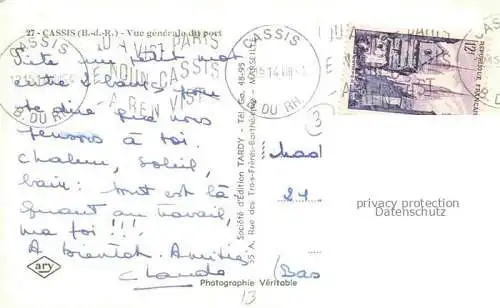 27 - CASSIS (B.-d.-R.) - Vue générale du port
CASSIS
B. DU RH.
QU'A VIST PARIS
E NOUN CASSIS
A REN VIST
CASSIS
B. DU RH.
12F
REPUBLIQUE FRANÇAISE
Vite un petit mot
entre 2 bains pour
te dire que nous
pensons à toi.
Chaleur, soleil,
bain: tout est là
Quant au travail,
ma foi !!!
A bientôt. Amitiés
Claude
Société d'Édition TARDY - Tél. Ga. 48-95
55 A, Rue des Trois-Frères-Barthélemy - MARSEILLE
3
Mad
21
privacy protection
Datenschutz
(Bas
ary
Photographie Véritable
13